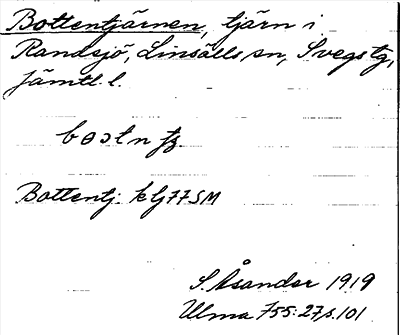 Bottentjärnen, tjärn i
Randsjö, Linsälls sn, Svegs tg,
Jämtl. l.
Bottentj. klj 77 SM
S. Åsander 1919
Ulma 755:27 s. 101